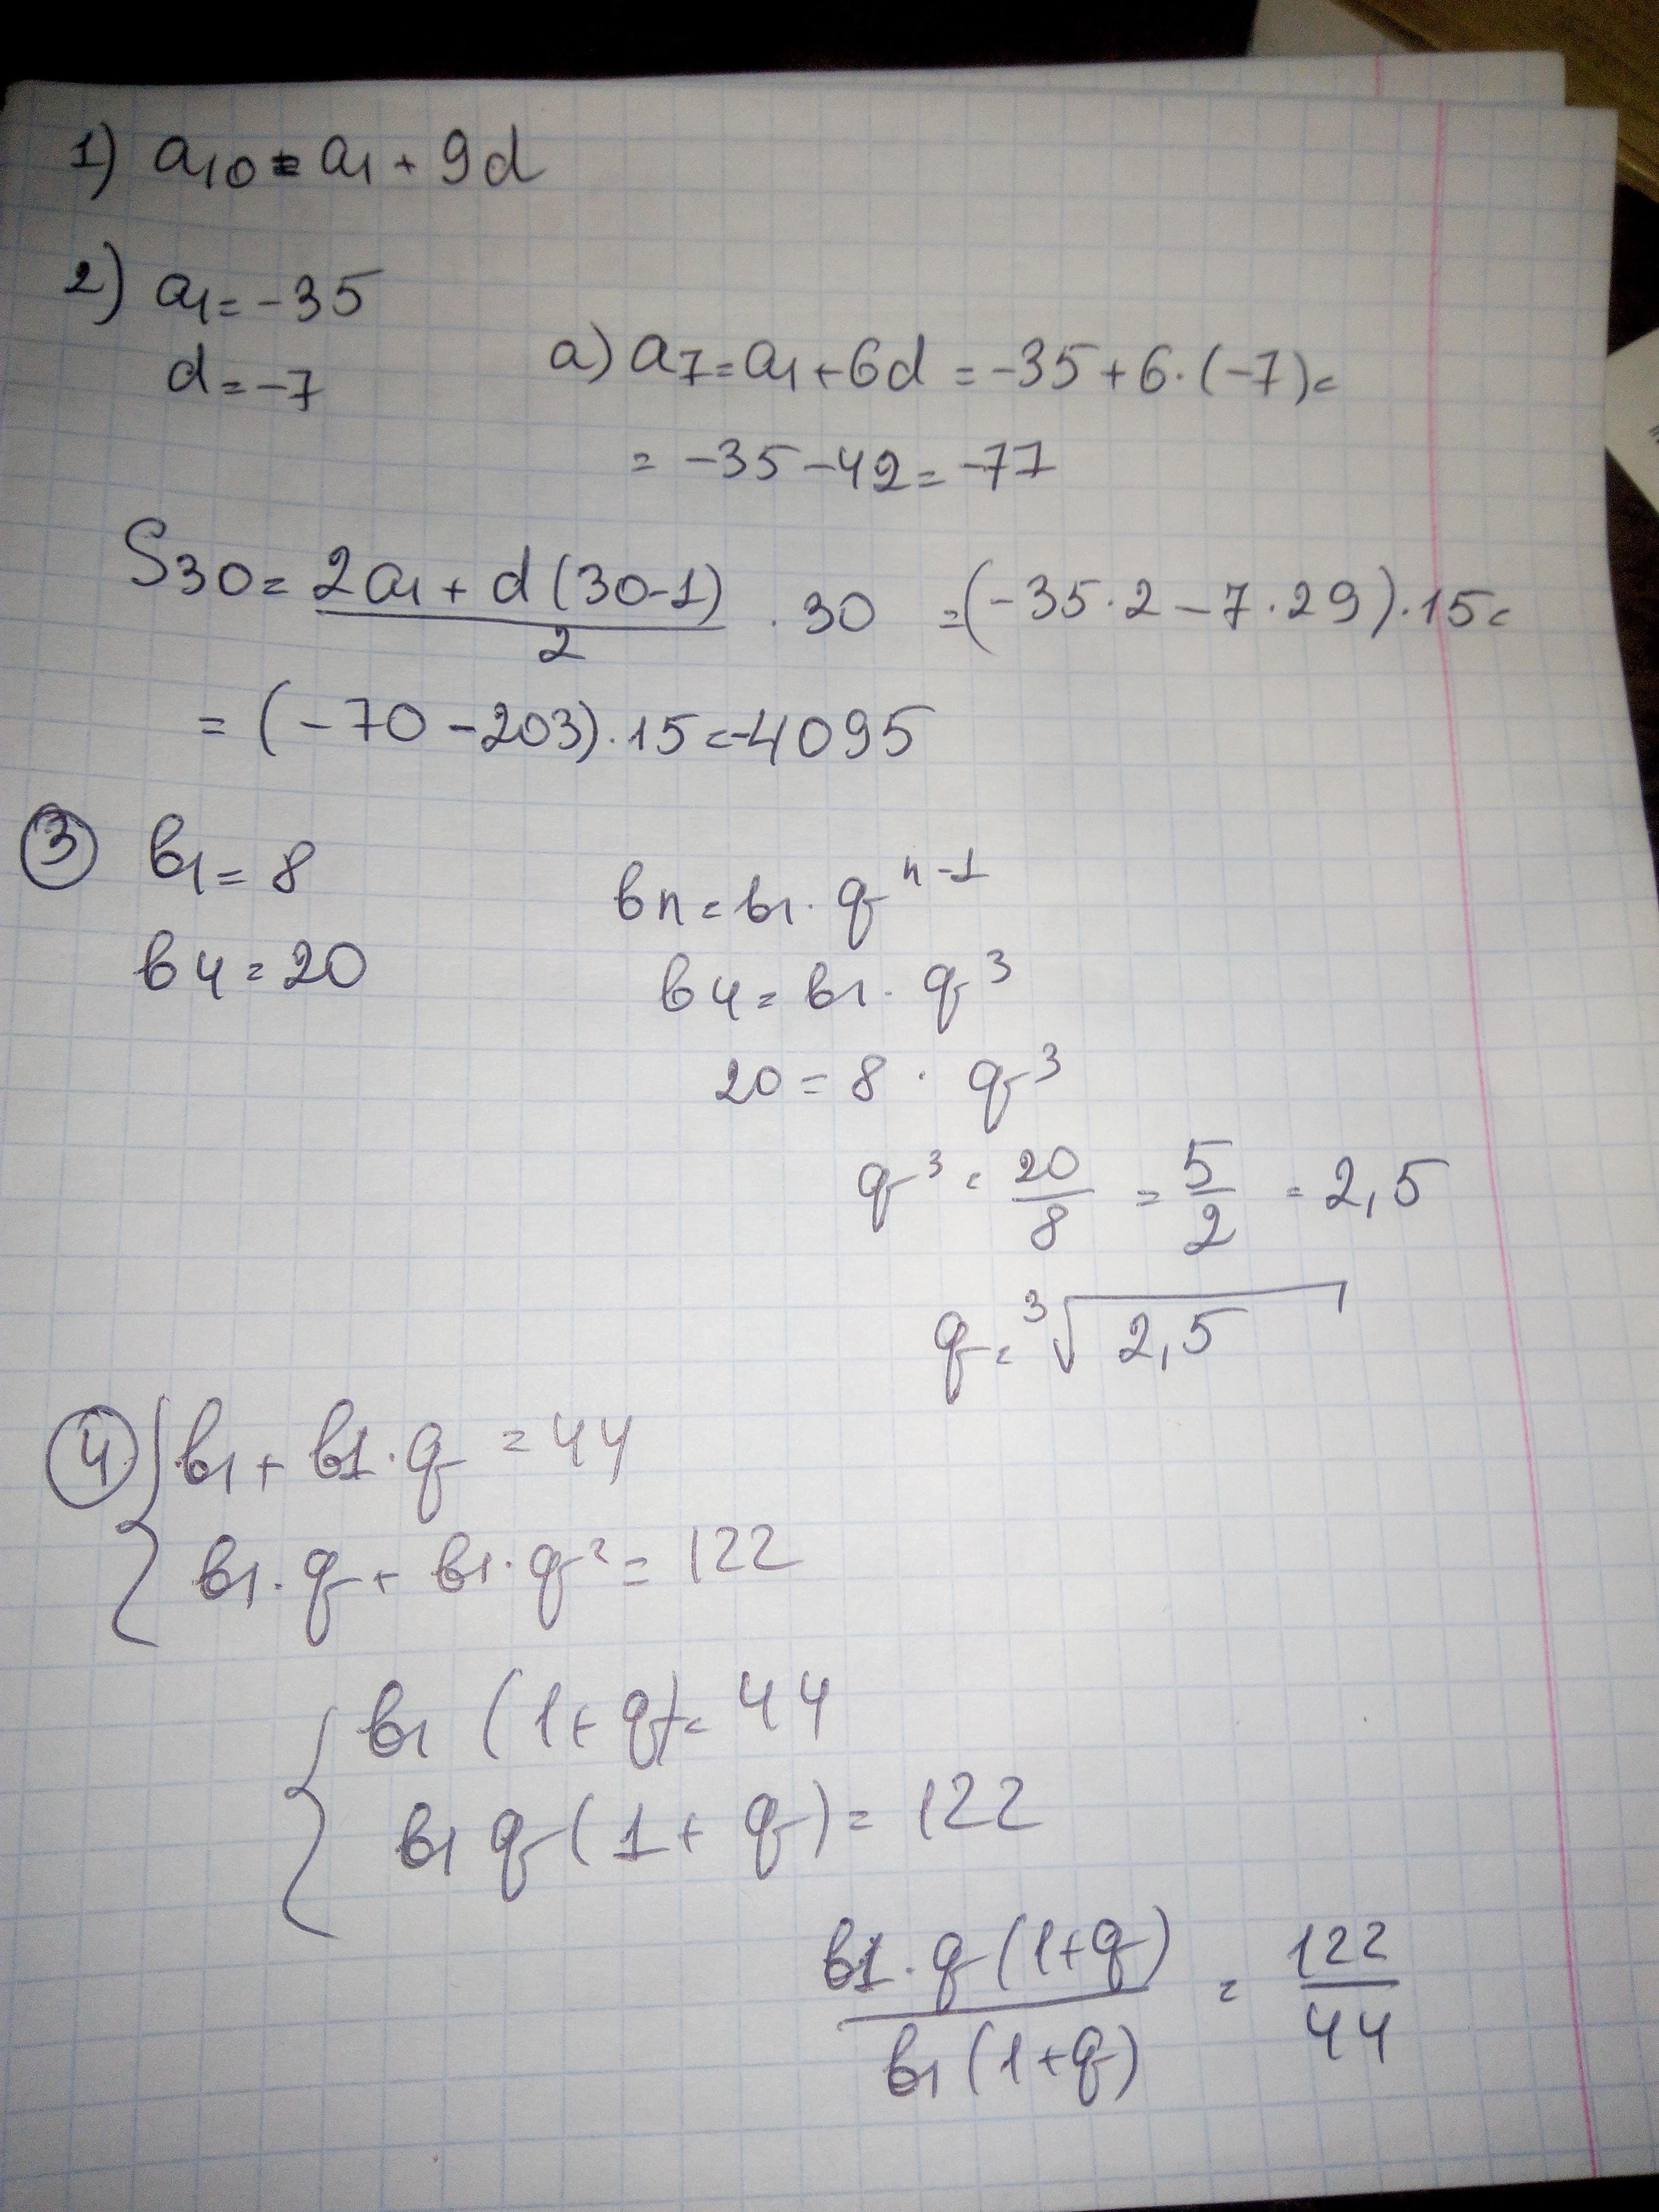 1) a₁₀ = a₁ + 9d
2) a₁ = -35
d = -7
a) a₇ = a₁ + 6d = -35 + 6·(-7) =
= -35 - 42 = -77
S₃₀ = (2a₁ + d(30-1))/2 · 30 = (-35·2 - 7·29)·15 =
= (-70 - 203)·15 = -4095
③ в₁ = 8
в₄ = 20
вn = в₁·qⁿ⁻¹
в₄ = в₁·q³
20 = 8·q³
q³ = 20/8 = 5/2 = 2,5
q = ³√2,5
④ { в₁ + в1·q = 44
в₁·q + в₁·q² = 122
{ в₁ (1+q) = 44
в₁ q(1+q) = 122
в1·q(1+q)/в₁(1+q) = 122/44